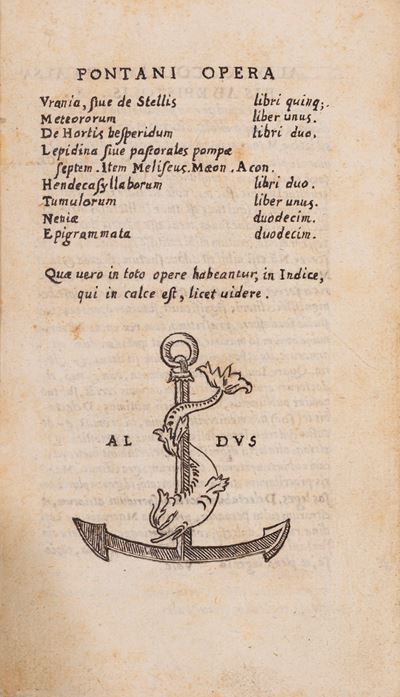 PONTANI OPERA
Vrania, siue de Stellis libri quinq;.
Meteororum liber unus.
De Hortis hesperidum libri duo.
Lepidina siue pastorales pompæ
septem. Item Meliseus. Mæon. Acon.
Hendecasyllaborum libri duo.
Tumulorum liber unus.
Neniæ duodecim.
Epigrammata duodecim.
Quæ uero in toto opere habeantur, in Indice,
qui in calce est, licet uidere.
AL DVS